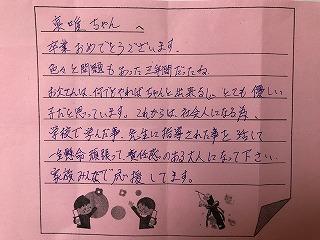 菜唯ちゃんへ
卒業おめでとうございます.
色々と問題もあった三年間だったね.
お父さんは、何でもやればちゃんと出来るし、とても優しい
子だと思っています。これからは、社会人になる為、
学校で学んだ事、先生に指導された事を活して
一生懸命頑張って、責任感のある大人になって下さい.
家族みんなで応援してます。